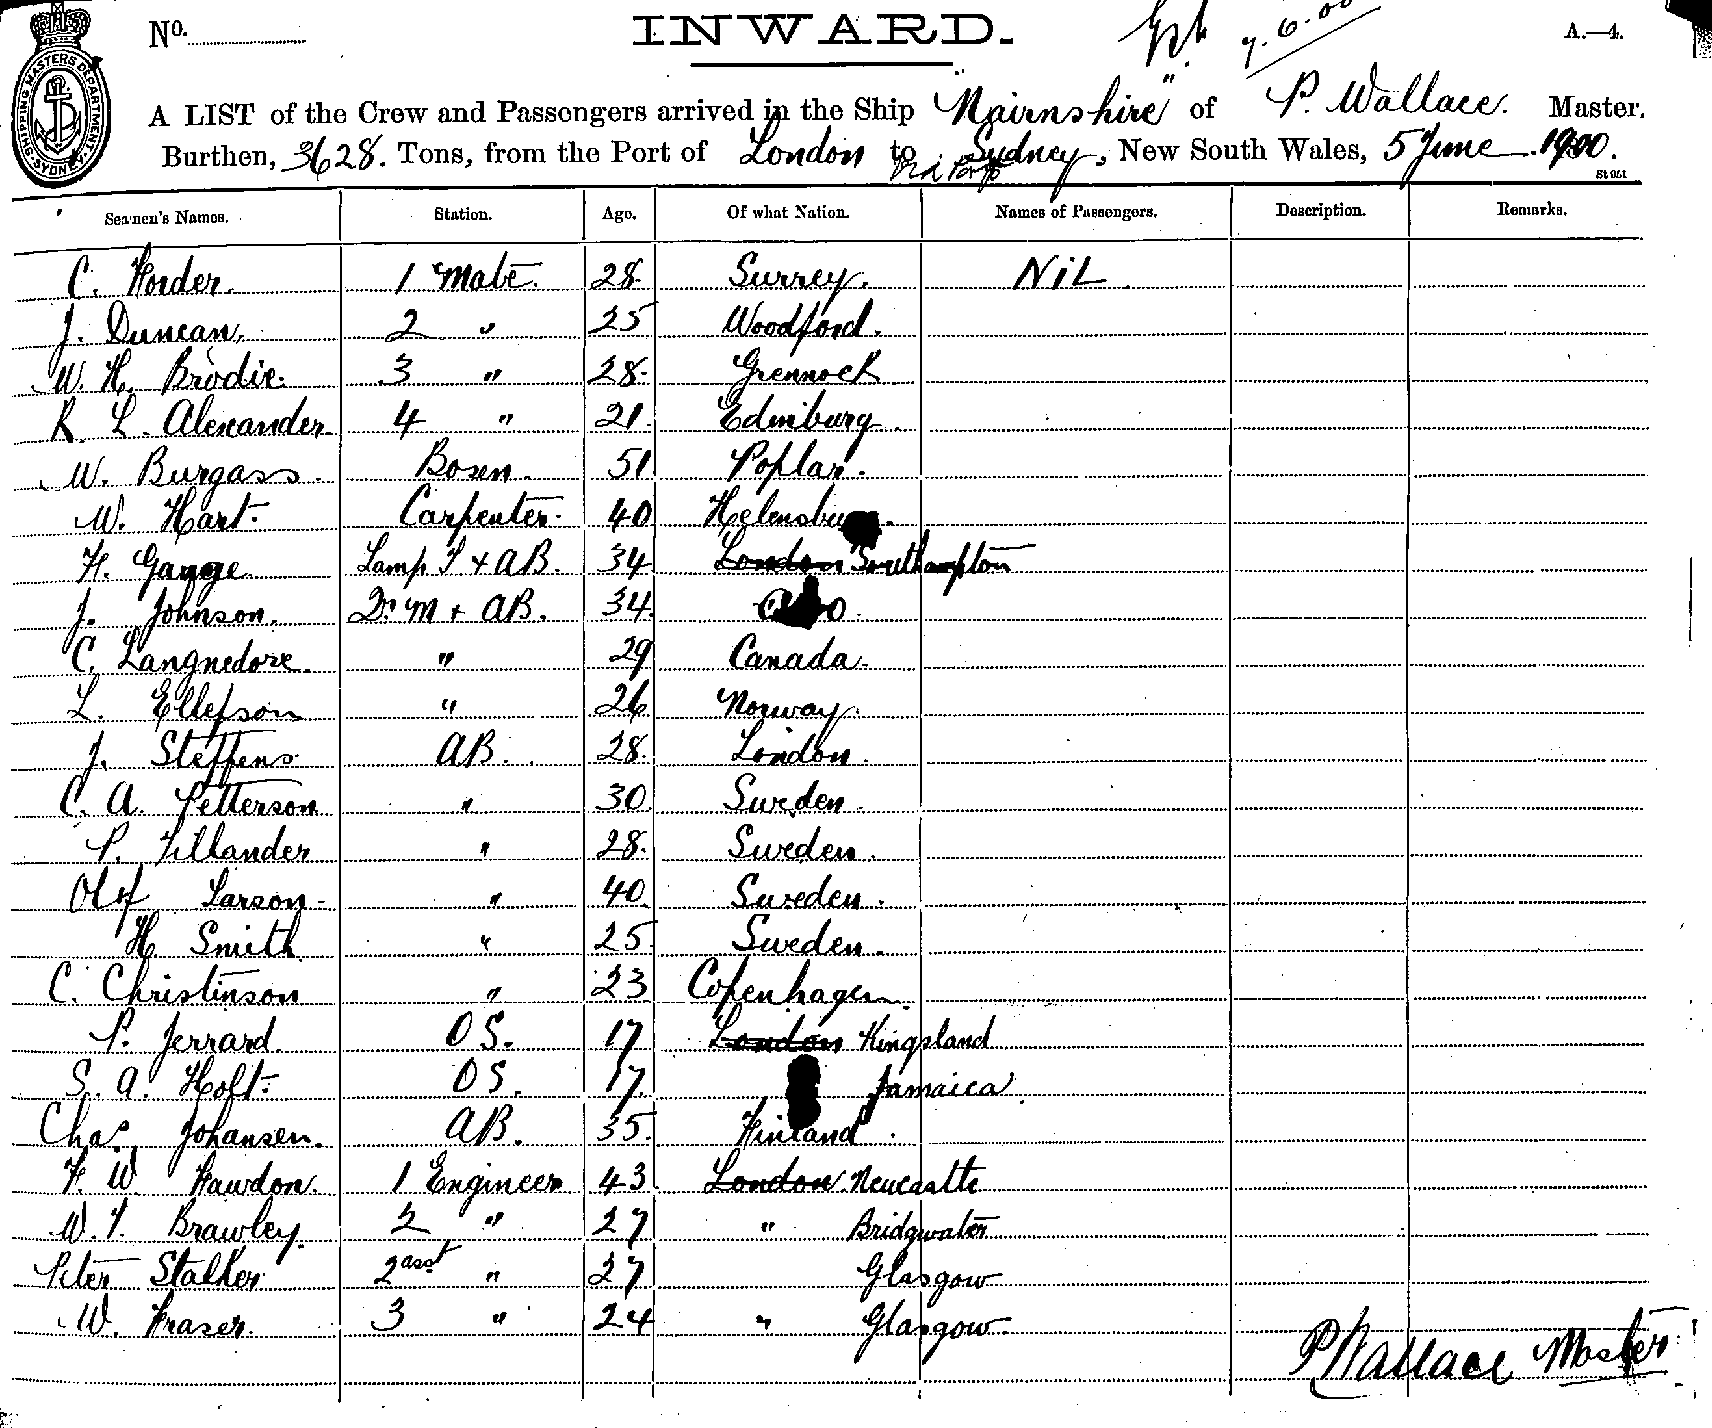 No. INWARD. 7.6.00 A.—4.
SHIPPING MASTERS DEPARTMENT SYDNEY
A LIST of the Crew and Passengers arrived in the Ship "Nairnshire" of P. Wallace. Master.
Burthen, 3628. Tons, from the Port of London to Sydney, New South Wales, 5 June 1900.
via Ports
Seamen's Names. Station. Age. Of what Nation. Names of Passengers. Description. Remarks.
C. Horder. 1 Mate. 28. Surrey. NiL
J. Duncan. 2 " 25 Woodford.
W. H. Brodie. 3 " 28. Grennock
R. L. Alexander 4 " 21. Edinburg.
W. Burgass. Bosen. 51 Poplar.
W. Hart. Carpenter. 40 Helensburg.
H. Gange Lamp T + AB. 34 London Southampton
J. Johnson. Do. M + AB. 34.
C. Langnedore. " 29 Canada.
L. Ellefson " 26 Norway.
J. Steffens AB. 28. London.
C. A. Petterson " 30. Sweden.
P. Fillander " 28. Sweden.
Olof Larson " 40. Sweden.
H. Smith " 25. Sweden.
C. Christinson " 23 Copenhagen.
P. Jerrard. OS. 17 London Kingsland
S. A. Hoft. OS. 17. Jamaica.
Chas. Johansen. AB. 35. Finland.
F. W. Fawdon. 1 Engineer 43. London Newcastle
W. T. Brawley. 2 " 27 " Bridgwater
Peter Stalker 2 asst " 27 Glasgow
W. Fraser. 3 " 24 " Glasgow.
P Wallace Master